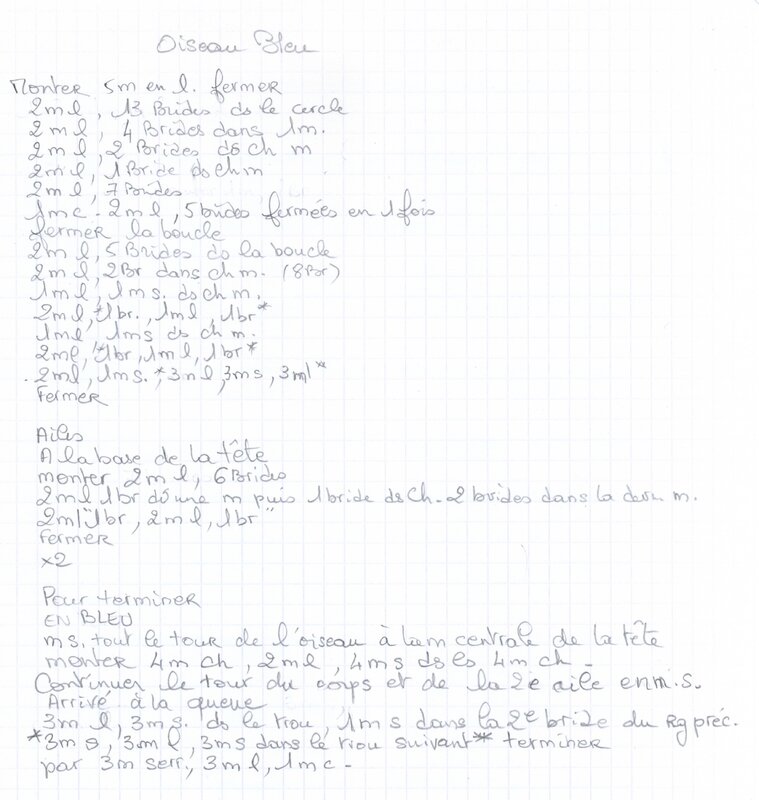 Oiseau Bleu
Monter 5m en l. fermer
2ml, 13 Brides ds le cercle
2ml, 4 Brides dans 1m.
2ml, 2 Brides ds ch m
2ml, 1 Bride ds ch m
2ml, 7 Brides
1mc - 2ml, 5 brides fermées en 1 fois
fermer la boucle
2ml, 5 Brides ds la boucle
2ml, 2Br dans ch m. (8Br)
1ml, 1ms. ds ch m.
2ml, *1br., 1ml, 1br*
1ml 1ms ds ch m.
2ml, *1br, 1ml, 1br*
2ml, 1ms. *3ml, 3ms, 3ml*
Fermer
Ailes
A la base de la tête
monter 2ml, 6 Brides
2ml 1br ds une m puis 1 bride ds ch - 2 brides dans la dern m.
2ml "1br, 2ml, 1br"
Fermer
x2
Pour terminer
EN BLEU
ms. tout le tour de l'oiseau à la m centrale de la tête
monter 4m ch, 2ml, 4ms ds les 4m ch -
Continuer le tour du corps et de la 2e aile en m.s.
Arrivé à la queue
3ml, 3ms. ds le trou, 1ms dans la 2e bride du Rg préc.
*3ms, 3ml, 3ms dans le trou suivant* terminer
par 3m serr., 3ml, 1mc -